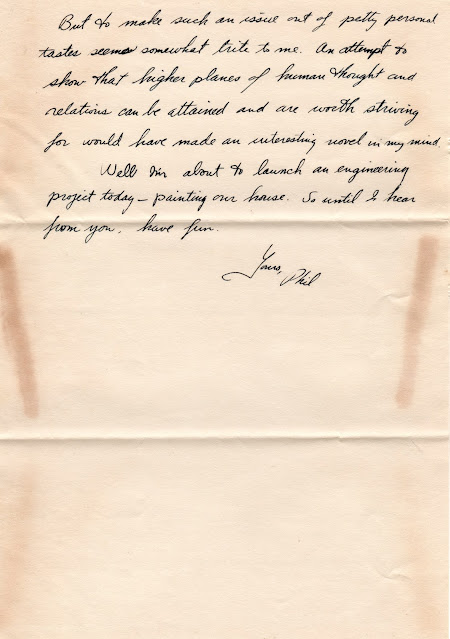 But to make such an issue out of petty personal
tastes seems somewhat trite to me. An attempt to
show that higher planes of human thought and
relations can be attained and are worth striving
for would have made an interesting novel in my mind.
Well I'm about to launch an engineering
project today - painting our house. So until I hear
from you, have fun.
Yours,
Phil